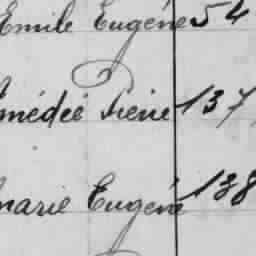 Emile Eugène 54
Amédée Pierre 137
Marie Eugène 138